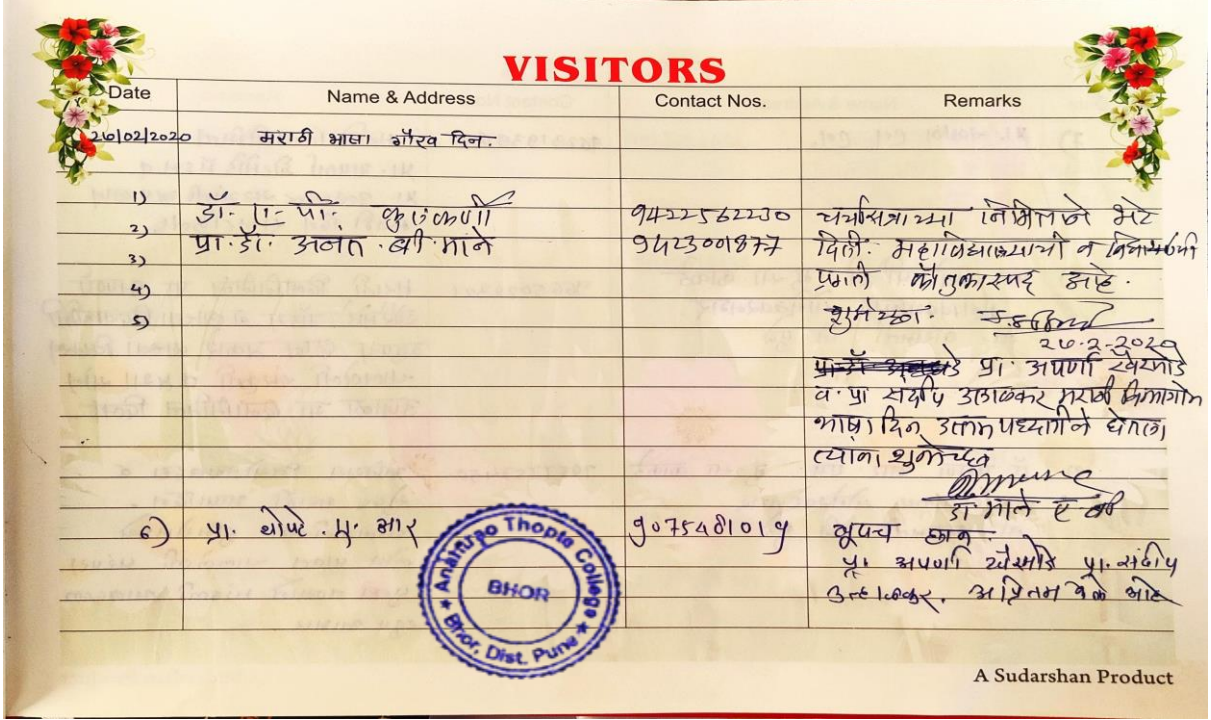 VISITORS
Date Name & Address Contact Nos. Remarks
२७/02/2020 मराठी भाषा गौरव दिन.
1) डॉ. ए. पी. कुलकर्णी 9422562230 चर्चासत्राच्या निमित्ताने भेट
2) प्रा. डॉ. अनंत. बी. माने 9423001877 दिली. महाविद्यालयाची व विद्यार्थ्यांची
3) प्रगती कौतुकास्पद आहे.
4) शुभेच्छा.
5) २७-2-2020
प्रा. अपर्णा खैरमोडे
व. प्रा संदीप मराठी विभागाने
भाषा दिन उत्तम पध्दतीने घेतला
त्यांना शुभेच्छा
डॉ माने ए बी
6) प्रा. थोपटे. यु. आर 9075481019 खूपच छान.
प्रा. अपर्णा खैरमोडे प्रा. संदीप
अप्रितम केले आहे
Anantrao Thopte College
BHOR
Bhor, Dist. Pune
A Sudarshan Product